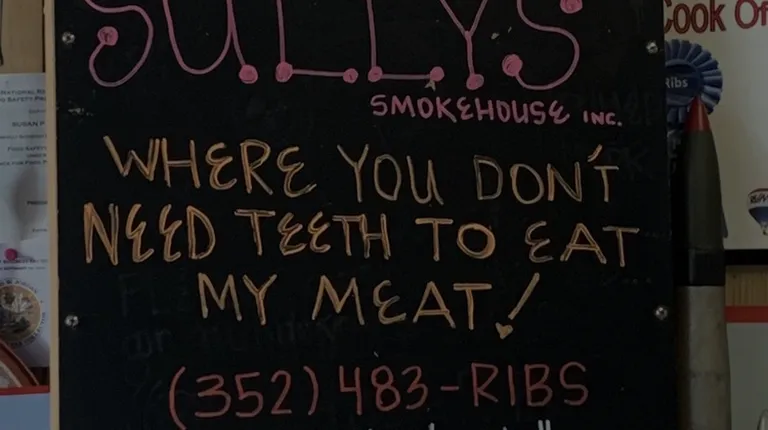 SULLY'S
SMOKEHOUSE INC.
WHERE YOU DON'T
NEED TEETH TO EAT
MY MEAT!
(352) 483-RIBS
Cook Of
Ribs
SUSAN P